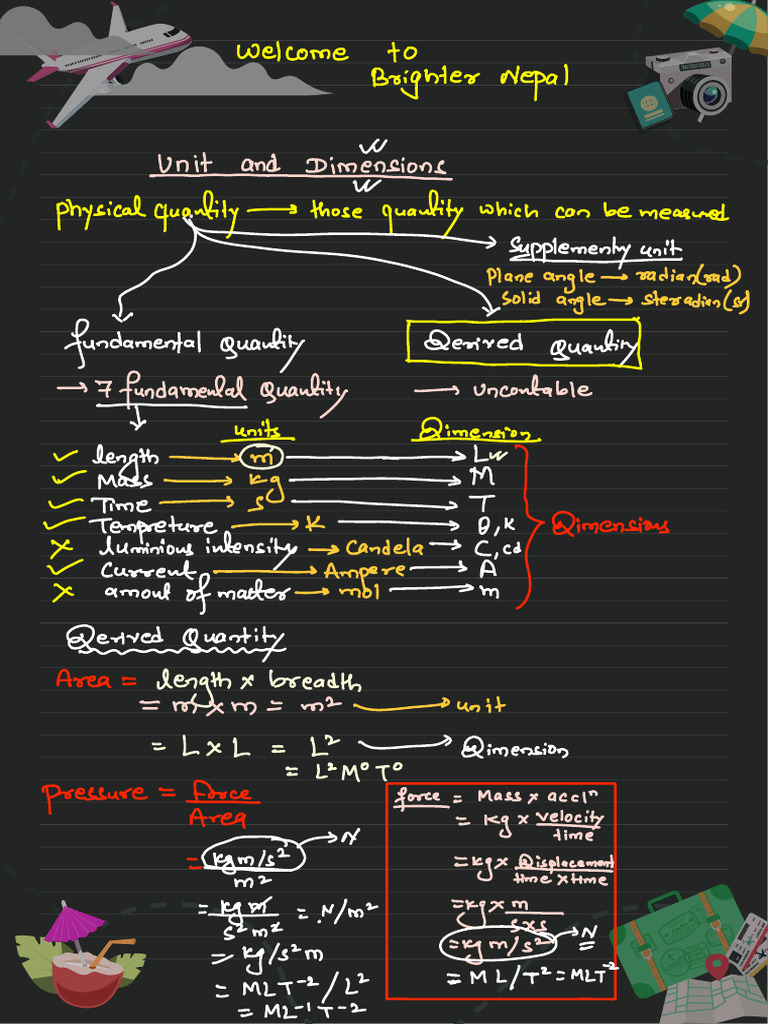 Welcome to
Brighter Nepal
Unit and Dimensions
Physical quantity → those quantity which can be measured
Supplementy unit
Plane angle → radian(rad)
Solid angle → steradian(sr)
fundamental Quantity
Derived Quantity
→ 7 fundamental Quantity
→ uncontable
units
Dimension
length → m → L
Mass → kg → M
Time → s → T
Tempreture → K → θ, K
luminious intensity → Candela → C, cd
Current → Ampere → A
amout of matter → mol → m
Dimensions
Derived Quantity
Area = length × breadth
= m × m = m² → unit
= L × L = L² → Dimension
= L² M⁰ T⁰
Pressure = force / Area
= kg m/s² / m² → N
= kg m / s² m² = N/m²
= kg/s² m
= MLT⁻² / L²
= ML⁻¹ T⁻²
force = Mass × acclⁿ
= kg × velocity / time
= kg × Displacement / time × time
= kg × m / s×s
= kg m/s² → N
= M L/T² = MLT⁻²